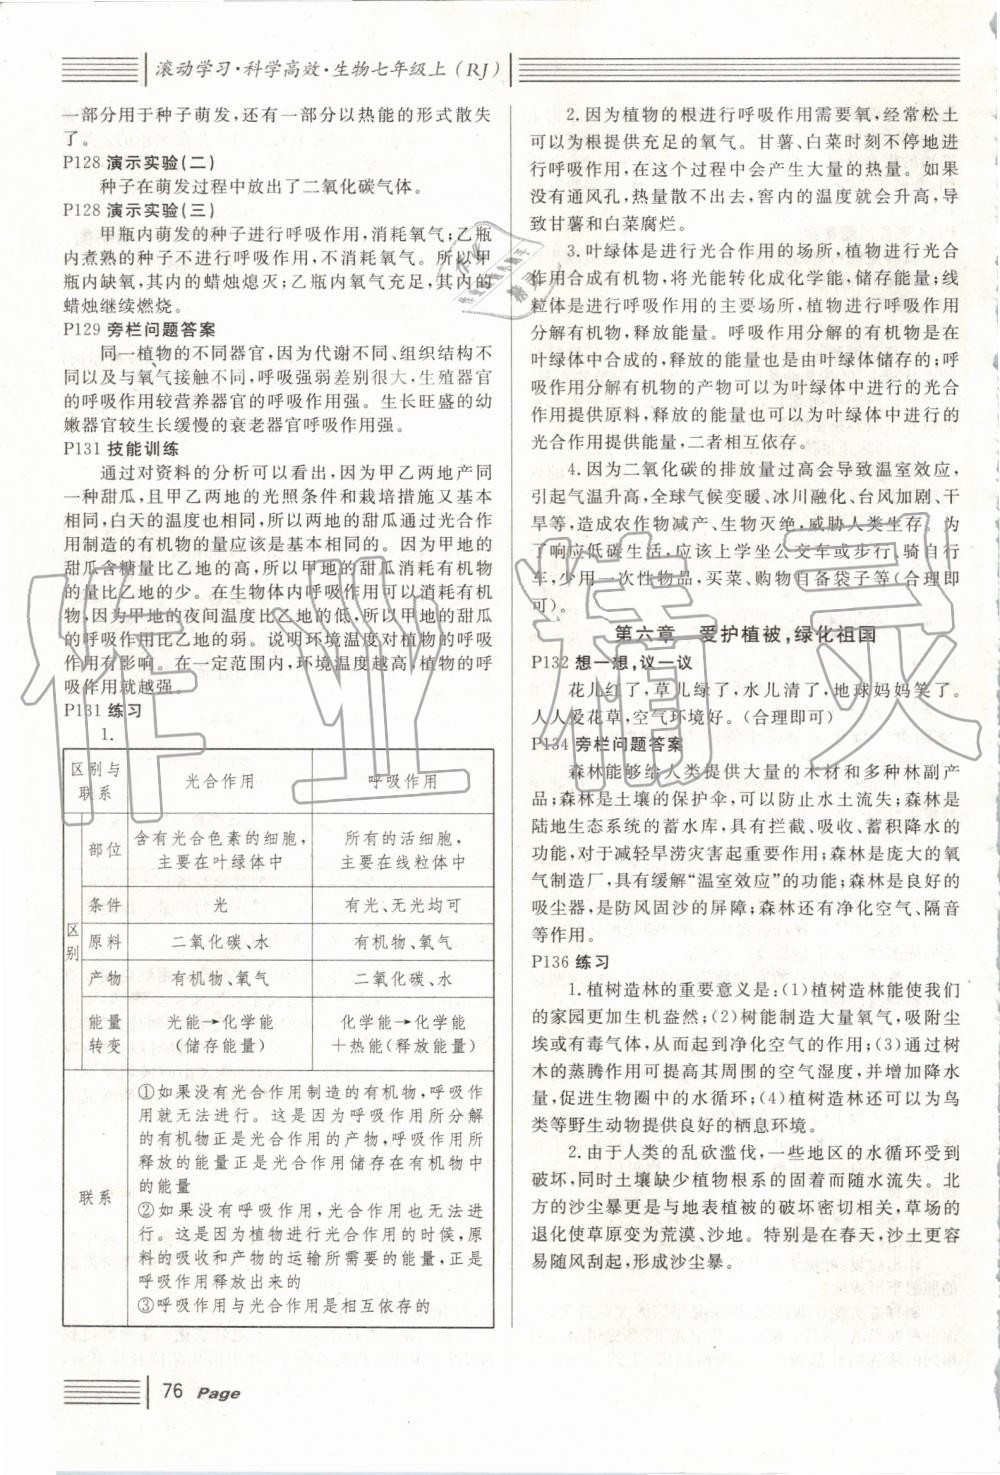 滚动学习·科学高效·生物七年级上(RJ)
一部分用于种子萌发,还有一部分以热能的形式散失
了。
P128 演示实验(二)
种子在萌发过程中放出了二氧化碳气体。
P128 演示实验(三)
甲瓶内萌发的种子进行呼吸作用,消耗氧气;乙瓶
内煮熟的种子不进行呼吸作用,不消耗氧气。所以甲
瓶内缺氧,其内的蜡烛熄灭;乙瓶内氧气充足,其内的
蜡烛继续燃烧。
P129 旁栏问题答案
同一植物的不同器官,因为代谢不同、组织结构不
同以及与氧气接触不同,呼吸强弱差别很大,生殖器官
的呼吸作用较营养器官的呼吸作用强。生长旺盛的幼
嫩器官较生长缓慢的衰老器官呼吸作用强。
P131 技能训练
通过对资料的分析可以看出,因为甲乙两地产同
一种甜瓜,且甲乙两地的光照条件和栽培措施又基本
相同,白天的温度也相同,所以两地的甜瓜通过光合作
用制造的有机物的量应该是基本相同的。因为甲地的
甜瓜含糖量比乙地的高,所以甲地的甜瓜消耗有机物
的量比乙地的少。在生物体内呼吸作用可以消耗有机
物,因为甲地的夜间温度比乙地的低,所以甲地的甜瓜
的呼吸作用比乙地的弱。说明环境温度对植物的呼吸
作用有影响。在一定范围内,环境温度越高,植物的呼
吸作用就越强。
P131 练习
1.
区别与联系 光合作用 呼吸作用
区别 部位 含有光合色素的细胞,主要在叶绿体中 所有的活细胞,主要在线粒体中
条件 光 有光、无光均可
原料 二氧化碳、水 有机物、氧气
产物 有机物、氧气 二氧化碳、水
能量转变 光能→化学能(储存能量) 化学能→化学能+热能(释放能量)
联系
①如果没有光合作用制造的有机物,呼吸作
用就无法进行。这是因为呼吸作用所分解
的有机物正是光合作用的产物,呼吸作用所
释放的能量正是光合作用储存在有机物中
的能量
②如果没有呼吸作用,光合作用也无法进
行。这是因为植物进行光合作用的时候,原
料的吸收和产物的运输所需要的能量,正是
呼吸作用释放出来的
③呼吸作用与光合作用是相互依存的
2.因为植物的根进行呼吸作用需要氧,经常松土
可以为根提供充足的氧气。甘薯、白菜时刻不停地进
行呼吸作用,在这个过程中会产生大量的热量。如果
没有通风孔,热量散不出去,窖内的温度就会升高,导
致甘薯和白菜腐烂。
3.叶绿体是进行光合作用的场所,植物进行光合
作用合成有机物,将光能转化成化学能,储存能量;线
粒体是进行呼吸作用的主要场所,植物进行呼吸作用
分解有机物,释放能量。呼吸作用分解的有机物是在
叶绿体中合成的,释放的能量也是由叶绿体储存的;呼
吸作用分解有机物的产物可以为叶绿体中进行的光合
作用提供原料,释放的能量也可以为叶绿体中进行的
光合作用提供能量,二者相互依存。
4.因为二氧化碳的排放量过高会导致温室效应,
引起气温升高,全球气候变暖、冰川融化、台风加剧、干
旱等,造成农作物减产、生物灭绝,威胁人类生存。为
了响应低碳生活,应该上学坐公交车或步行、骑自行
车,少用一次性物品,买菜、购物自备袋子等(合理即
可)。
第六章 爱护植被,绿化祖国
P132 想一想,议一议
花儿红了,草儿绿了,水儿清了,地球妈妈笑了。
人人爱花草,空气环境好。(合理即可)
P134 旁栏问题答案
森林能够给人类提供大量的木材和多种林副产
品;森林是土壤的保护伞,可以防止水土流失;森林是
陆地生态系统的蓄水库,具有拦截、吸收、蓄积降水的
功能,对于减轻旱涝灾害起重要作用;森林是庞大的氧
气制造厂,具有缓解“温室效应”的功能;森林是良好的
吸尘器,是防风固沙的屏障;森林还有净化空气、隔音
等作用。
P136 练习
1.植树造林的重要意义是:(1)植树造林能使我们
的家园更加生机盎然;(2)树能制造大量氧气,吸附尘
埃或有毒气体,从而起到净化空气的作用;(3)通过树
木的蒸腾作用可提高其周围的空气湿度,并增加降水
量,促进生物圈中的水循环;(4)植树造林还可以为鸟
类等野生动物提供良好的栖息环境。
2.由于人类的乱砍滥伐,一些地区的水循环受到
破坏,同时土壤缺少植物根系的固着而使水流失。北
方的沙尘暴更是与地表植被的破坏密切相关,草场的
退化使草原变为荒漠、沙地。特别是在春天,沙土更容
易随风刮起,形成沙尘暴。
76 Page
作业精灵